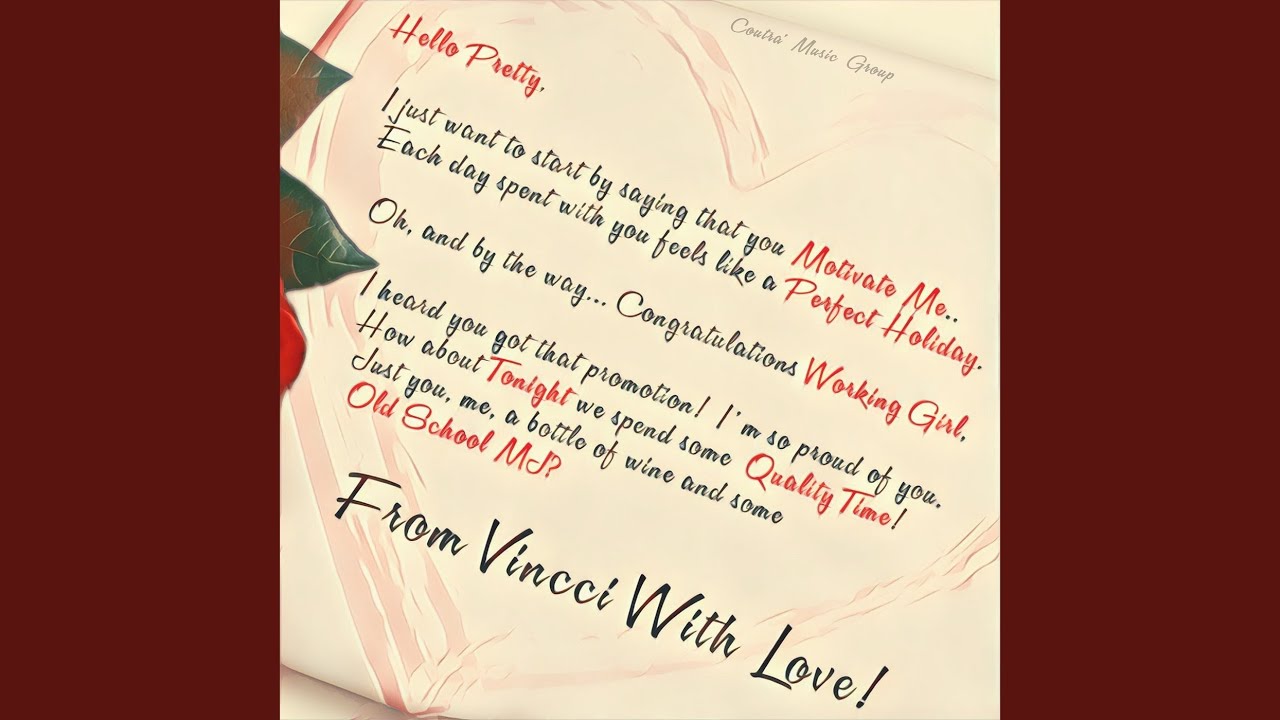 Coutra' Music Group
Hello Pretty,
I just want to start by saying that you Motivate Me..
Each day spent with you feels like a Perfect Holiday.
Oh, and by the way... Congratulations Working Girl,
I heard you got that promotion! I'm so proud of you.
How about Tonight we spend some Quality Time!
Just you, me, a bottle of wine and some
Old School MJ?
From Vincci With Love!